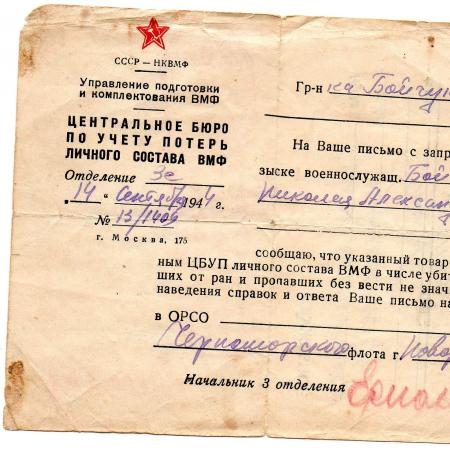 СССР — НКВМФ
Управление подготовки
и комплектования ВМФ
ЦЕНТРАЛЬНОЕ БЮРО
ПО УЧЕТУ ПОТЕРЬ
ЛИЧНОГО СОСТАВА ВМФ
Отделение 3е
„ 14 " Сентября 1944 г.
№ 13/1409
г. Москва, 175
Гр-н ка Бойчук
На Ваше письмо с запр
зыске военнослужащ. Бой
Николая Алексан
сообщаю, что указанный товар
ным ЦБУП личного состава ВМФ в числе убит
ших от ран и пропавших без вести не знач
наведения справок и ответа Ваше письмо на
в ОРСО
Черноморского флота г. Новор
Начальник 3 отделения